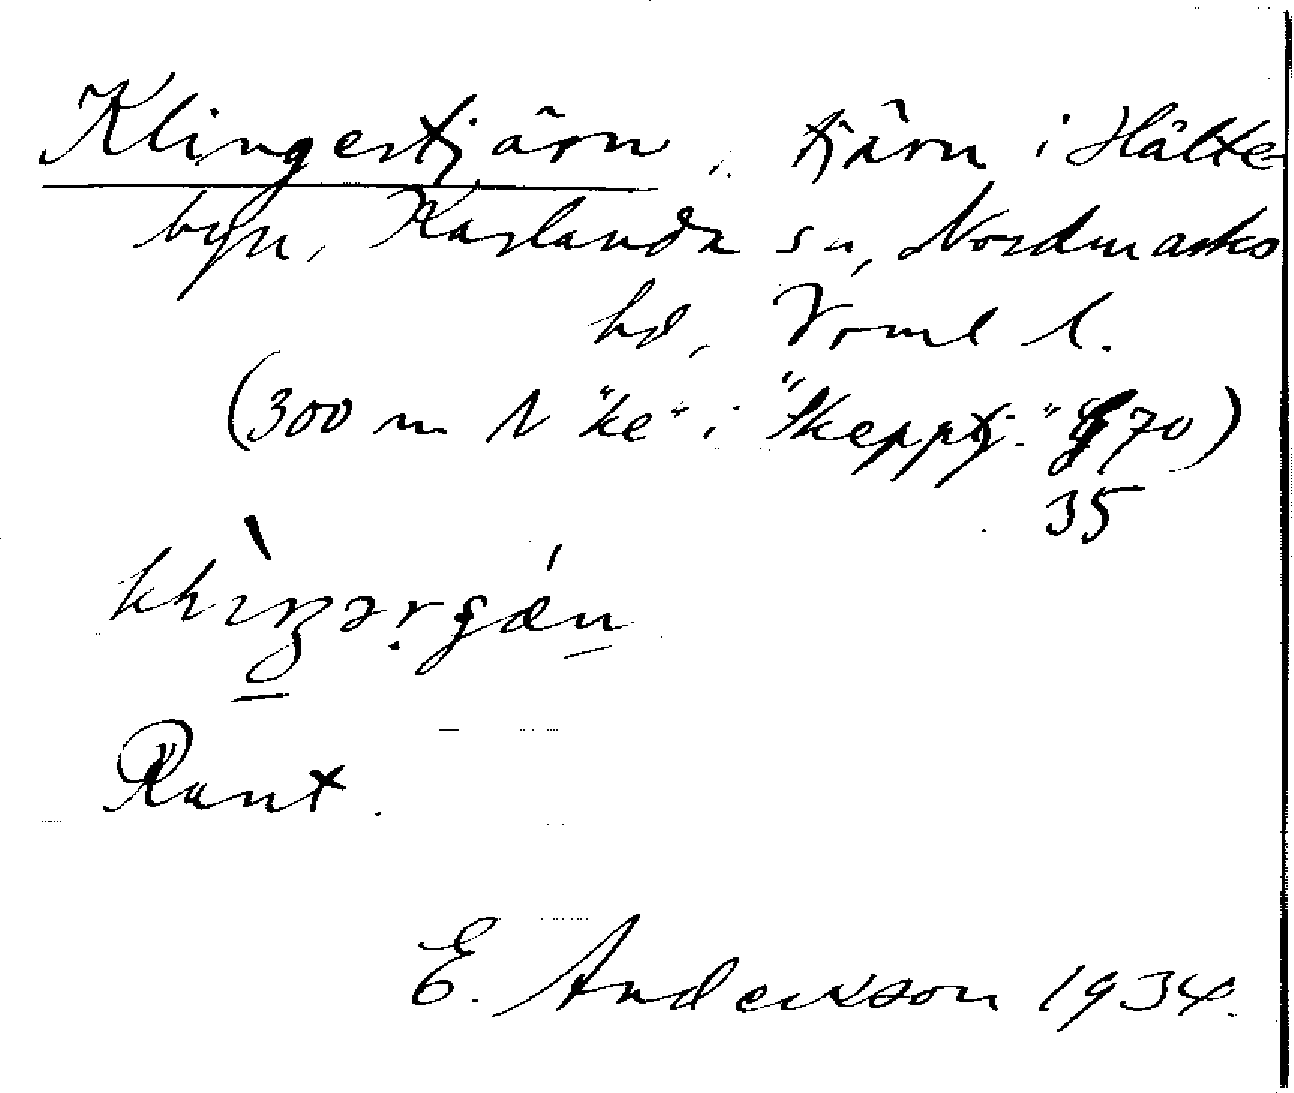 Klingertjärn, tjärn i Hälte-
byn, Karlanda sn, Nordmarks
hd, Vrml l.
(300 m N "ke" i "Skepptj." 70)
35
Runt.
E. Anderson 1934.